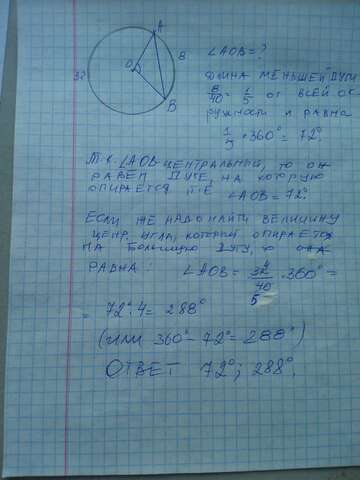 A
O
8
32
B
∠AOB = ?
ДЛИНА МЕНЬШЕЙ ДУГИ
8/40 = 1/5 ОТ ВСЕЙ ОК
РУЖНОСТИ И РАВНА
1/5 · 360° = 72°.
Т.К. ∠AOB-ЦЕНТРАЛЬНЫЙ, ТО ОН
РАВЕН ДУГЕ, НА КОТОРУЮ
ОПИРАЕТСЯ Т.Е
∠AOB = 72°.
ЕСЛИ ЖЕ НАДО НАЙТИ ВЕЛИЧИНУ
ЦЕНТР. УГЛА, КОТОРЫЙ ОПИРАЕТСЯ
НА БОЛЬШУЮ ДУГУ, ТО ОНА
РАВНА: ∠AOB = 32/40 · 360° =
4
5
= 72° · 4 = 288°
(ИЛИ 360° - 72° = 288°)
ОТВЕТ 72°; 288°.